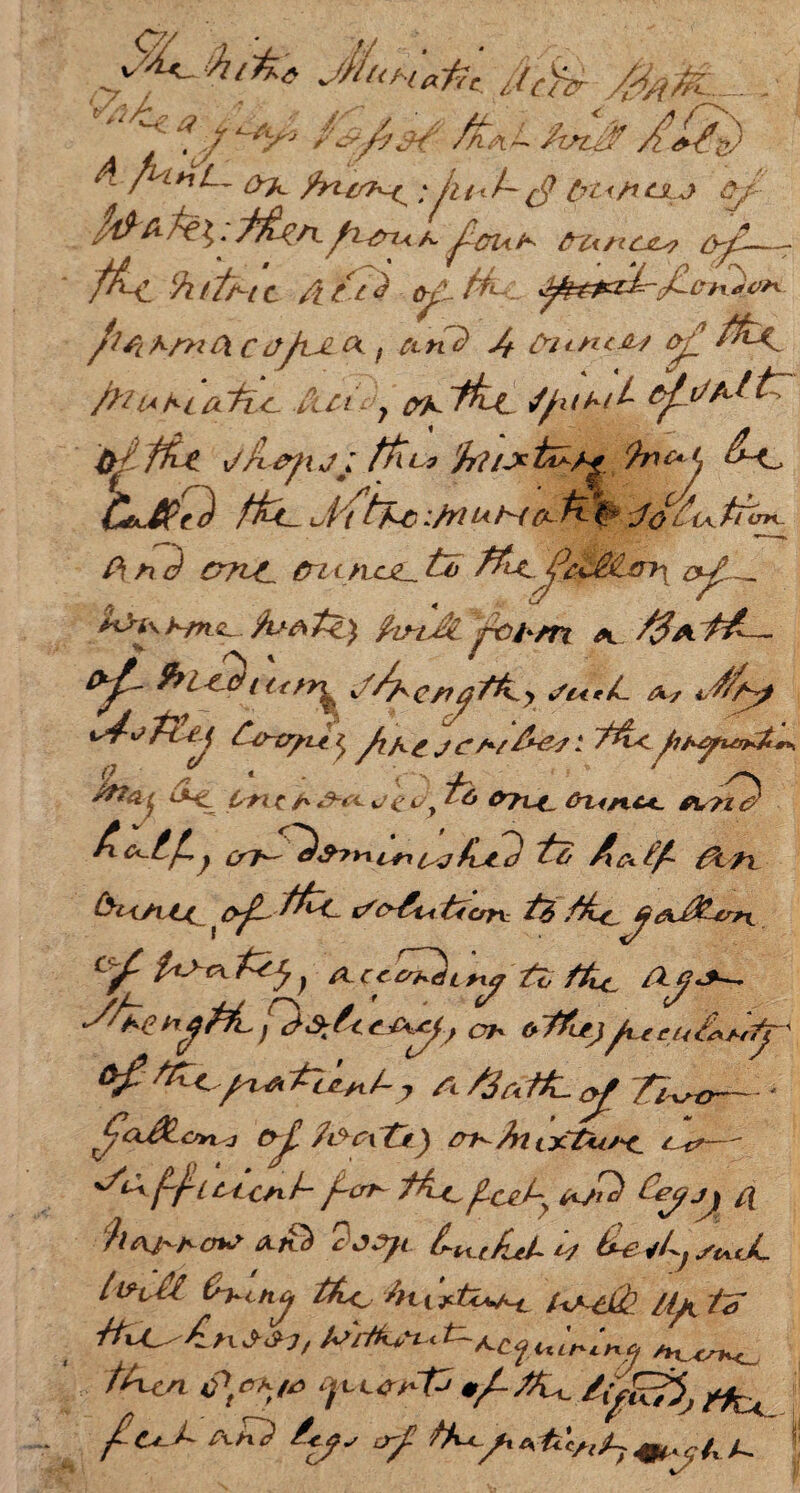 The Nitro Muriatic Acid Bath
Take a glass Vessel that will hold
A pint or more: put 8 ounces of
Water: then pour four ounces of
the Nitric Acid of the London
parmacopea, and 4 ounces of the
muriatic Acid, or the spirit of salt
of the shops; this mixture may be
Called the Nitro:muriatic solution
And one ounce to the Gallon of
warme water will form a Bath
of Medium strength, such as Mr
Astley Cooper prescribes: the proportion
may be increased, to one ounce and
half, or deminished to half an
Ounce of the solution to the gallon
of water, according to the age
strength, delicacy, or other peculiarity
of the patient, A Bath of Two
Gallons of Water or mixture is
sufficient for the feet, and legs, A
Narrow and deep bucket is best, such
will bring the mixture well Up to
the knees, without requiring more
then 6, or 10 quarts of the liqued, the
feet and legs of the patient, ought